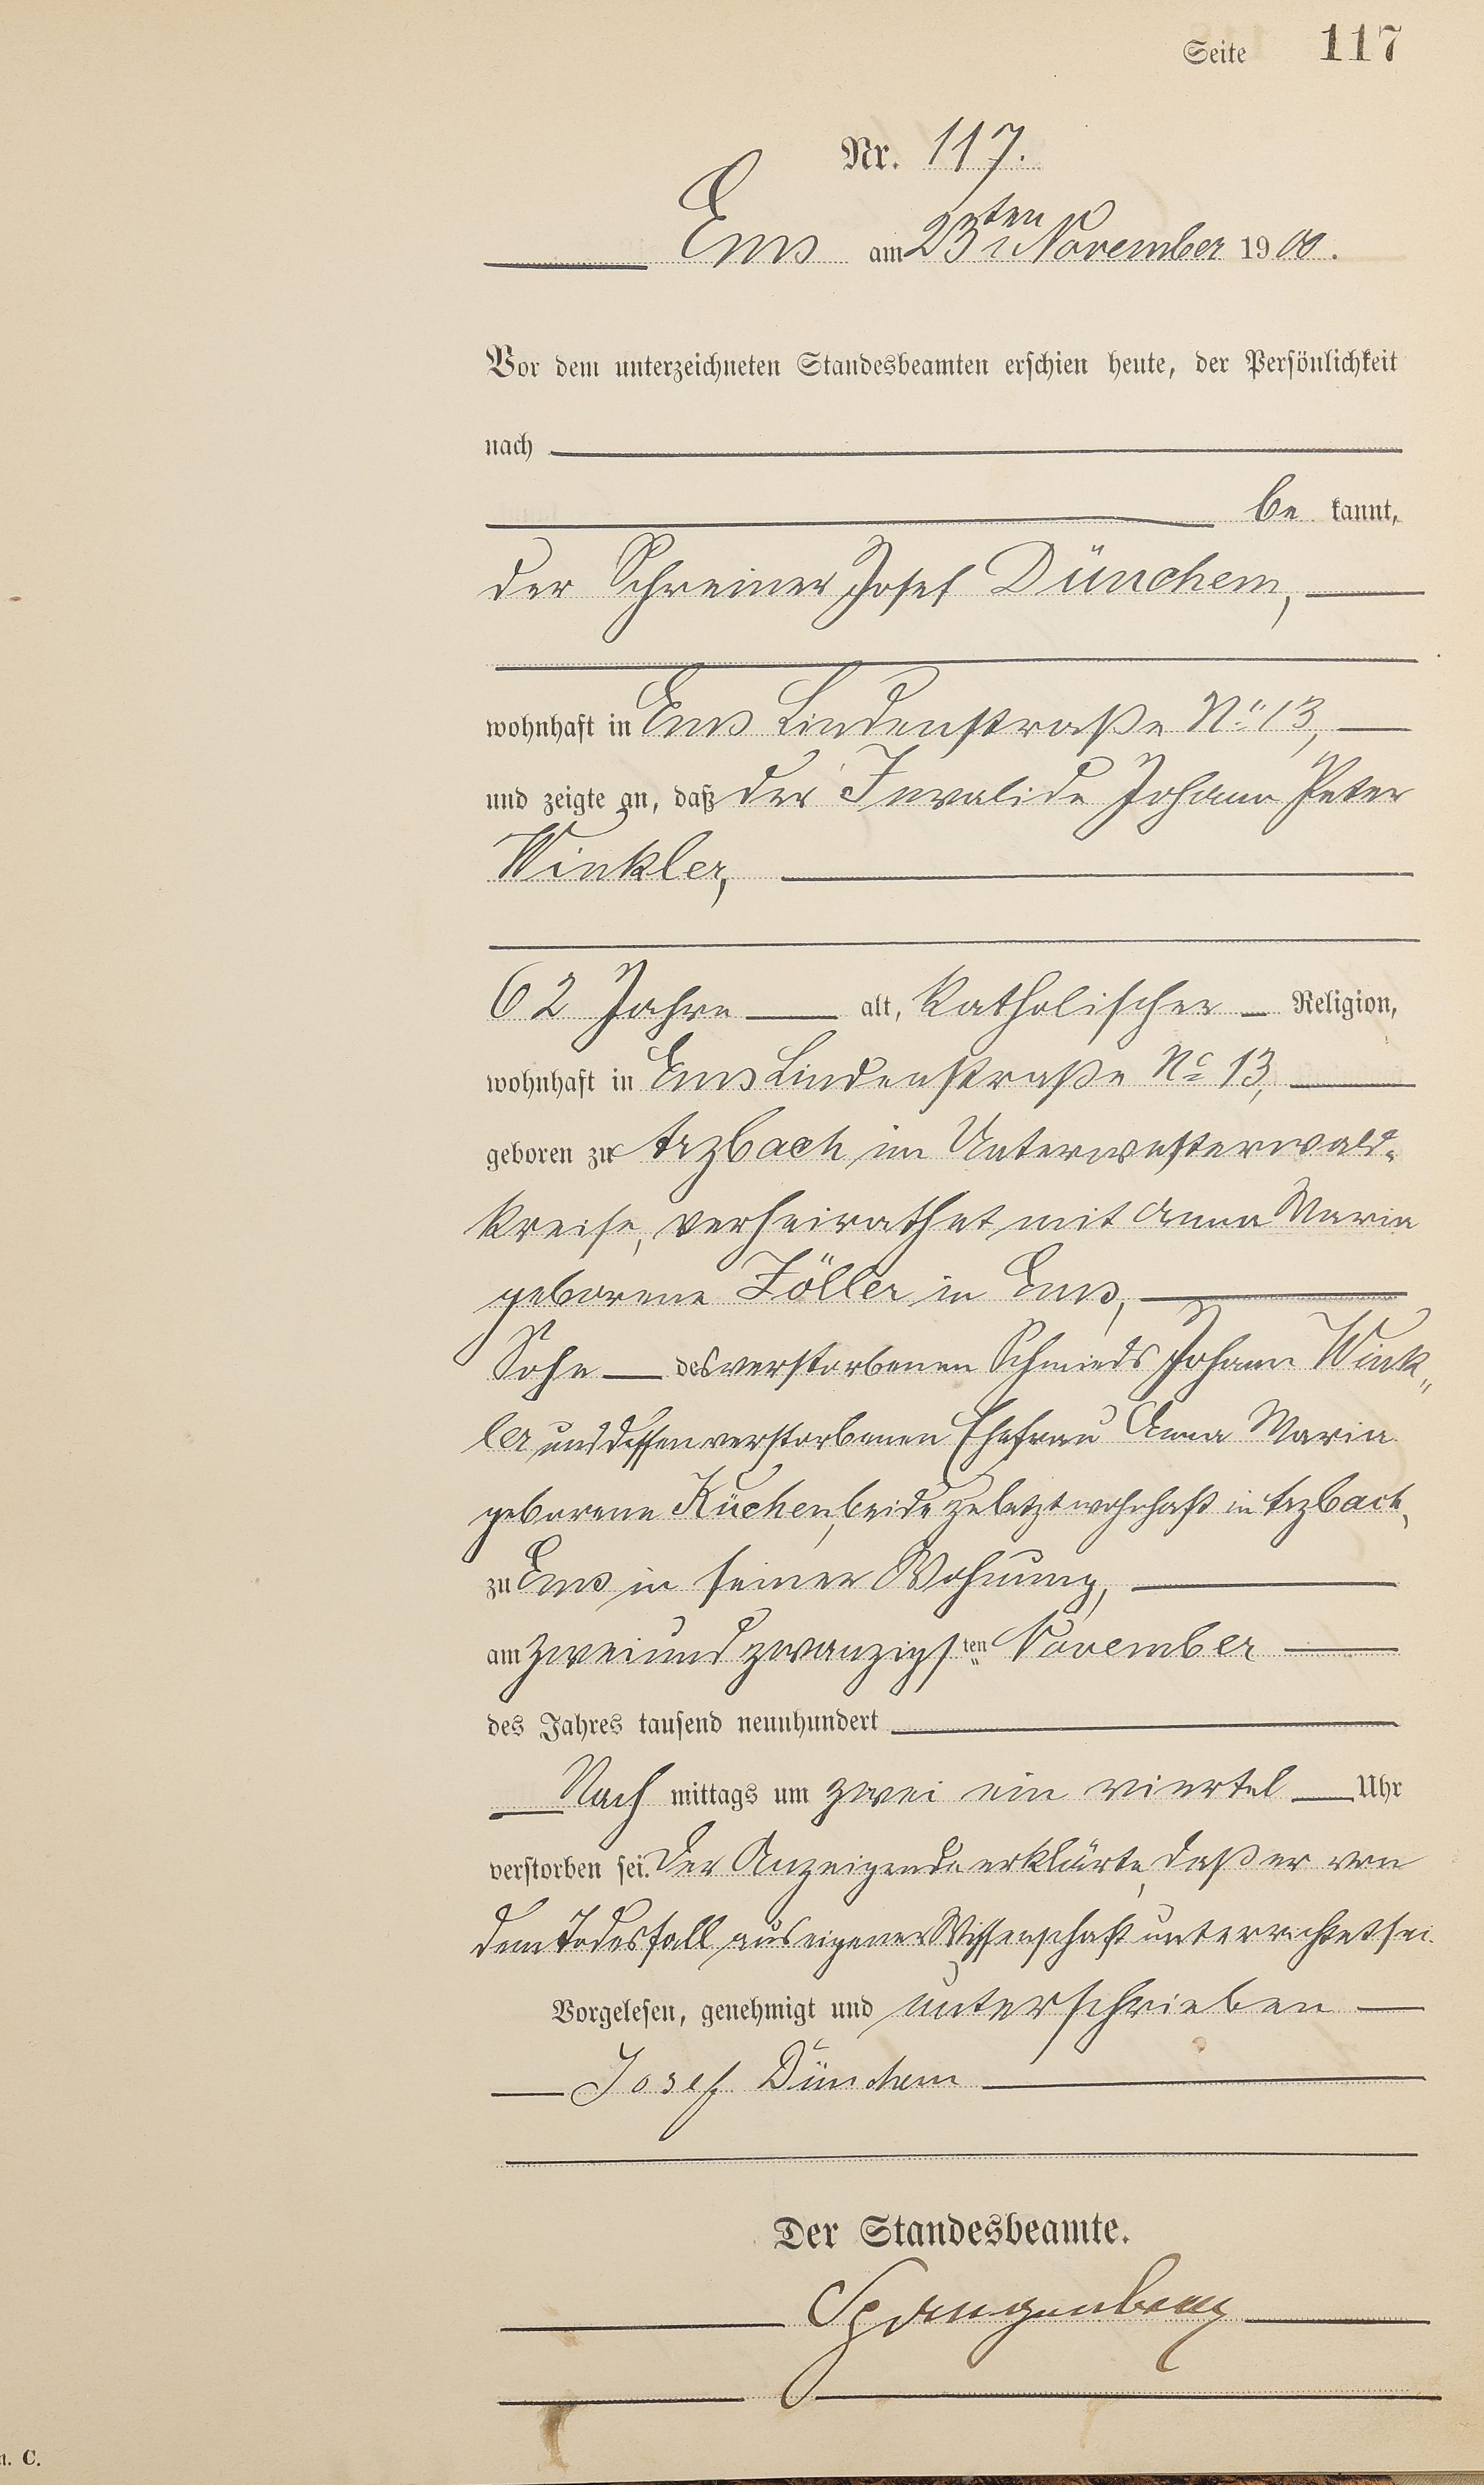 Seite 117
Nr. 117.
Ems am 23ten November 1900.
Vor dem unterzeichneten Standesbeamten erschien heute, der Persönlichkeit
nach
be kannt,
der Schreiner Josef Dünchem,
wohnhaft in Ems Lindenstraße No 13,
und zeigte an, daß der Invalide Johann Peter
Winkler,
62 Jahre alt, katholischer Religion,
wohnhaft in Ems Lindenstraße No 13,
geboren zu Arzbach im Unterwesterwald-
kreise, verheirathet mit Anna Maria
geborene Föller in Ems,
Sohn des verstorbenen Schmieds Johann Wink„
ler und dessen verstorbenen Ehefrau Anna Maria
geborene Küchen, beide zuletzt wohnhaft in Arzbach,
zu Ems in seiner Wohnung,
am zweiundzwanzigsten November
des Jahres tausend neunhundert
Nach mittags um zwei ein viertel Uhr
verstorben sei. Der Anzeigende erklärte, daß er von
dem Todesfall aus eigener Wissenschaft unterrichtet sei.
Vorgelesen, genehmigt und unterschrieben
Josef Dünchem
Der Standesbeamte.
Spangenberg
C.